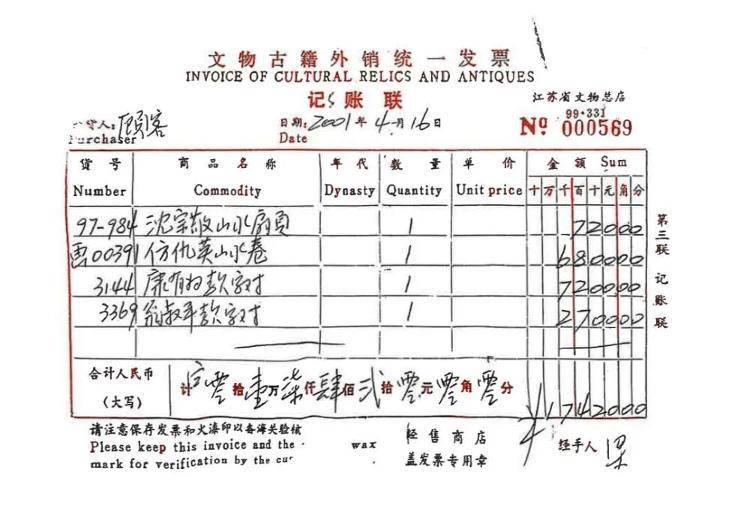 文物古籍外销统一发票
INVOICE OF CULTURAL RELICS AND ANTIQUES
记账联
江苏省文物总店
99·331
货人: 顾客
日期: 2001 年 4 月 16 日
Purchaser
Date
№ 000569
货号 商品名称 年代 数量 单价 金额 Sum
Number Commodity Dynasty Quantity Unit price 十万千百十元角分
97-984 沈宗敬山水扇页 1 72000
00391 仿仇英山水卷 1 680000
3144 康有为款字对 1 720000
3369 翁叔平款字对 1 270000
合计人民币
(大写)
计 零拾壹万柒仟肆佰贰拾零元零角零分
¥1742000
第三联 记账联
请注意保存发票和火漆印以备海关验核
Please keep this invoice and the wax
mark for verification by the cu
经售商店
盖发票专用章
经手人 梁